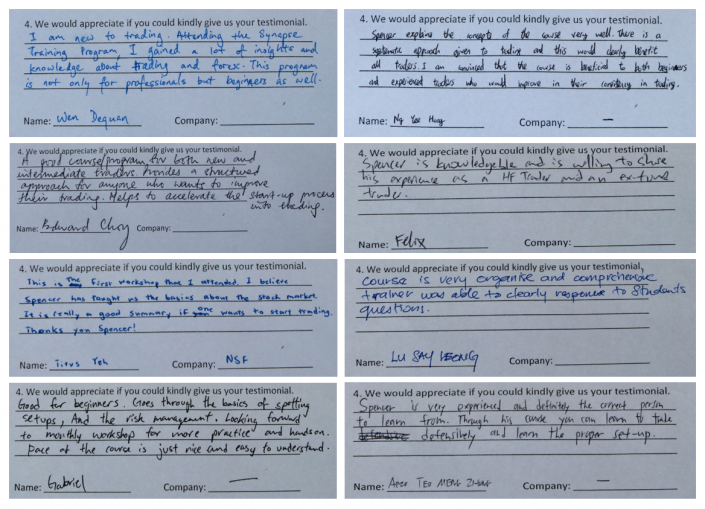 4. We would appreciate if you could kindly give us your testimonial.
I am new to trading. Attending the Synapse
Training Program, I gained a lot of insights and
knowledge about trading and forex. This program
is not only for professionals but beginners as well.
Name: Wen Dequan Company:
4. We would appreciate if you could kindly give us your testimonial.
Spencer explains the concepts of the course very well. There is a
systematic approach given to trading and this would clearly benefit
all traders. I am convinced that the course is beneficial to both beginners
and experienced traders who would improve in their consistency in trading.
Name: Ng Yee Company: —
4. We would appreciate if you could kindly give us your testimonial.
A good course/program for both new and
intermediate traders. Provides a structured
approach for anyone who wants to improve
their trading. Helps to accelerate the start-up process
into trading.
Name: Edward Choy Company:
4. We would appreciate if you could kindly give us your testimonial.
Spencer is knowledgeble and is willing to share
his experience as a HF Trader and an ex-fund
trader.
Name: Felix Company:
4. We would appreciate if you could kindly give us your testimonial.
This is the First workshop that I attended. I believe
Spencer has taught us the basics about the stock market.
It is really a good summary if one wants to start trading.
Thanks you Spencer!
Name: Titus Yeh Company: NSF
4. We would appreciate if you could kindly give us your testimonial,
Course is very organise and comprehensive
trainer was able to clearly response to students
questions.
Name: LU SAY LEONG Company:
4. We would appreciate if you could kindly give us your testimonial.
Good for beginners. Goes through the basics of spotting
setups, And the risk management. Looking forward
to monthly workshop for more practice and handson.
Pace of the course is just nice and easy to understand.
Name: Gabriel Company: —
4. We would appreciate if you could kindly give us your testimonial.
Spencer is very experienced and definitely the correct person
to learn from. Through his course you can learn to trade
defensively and learn the proper set-up.
Name: TEO MENG Company: —